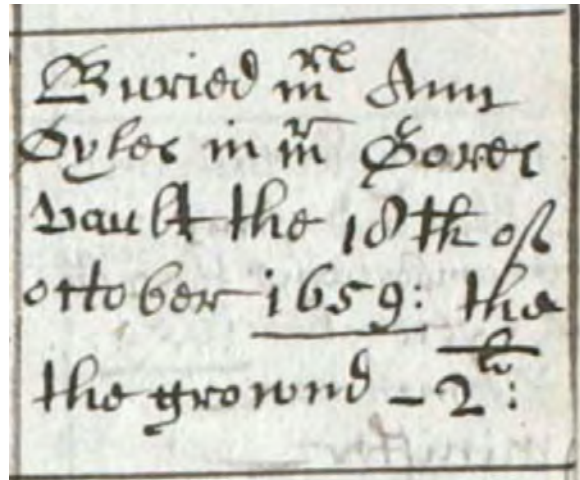 Buried mrs Ann
Syles in mr Gores
vault the 18th of
october 1659: the
the ground - 2li: